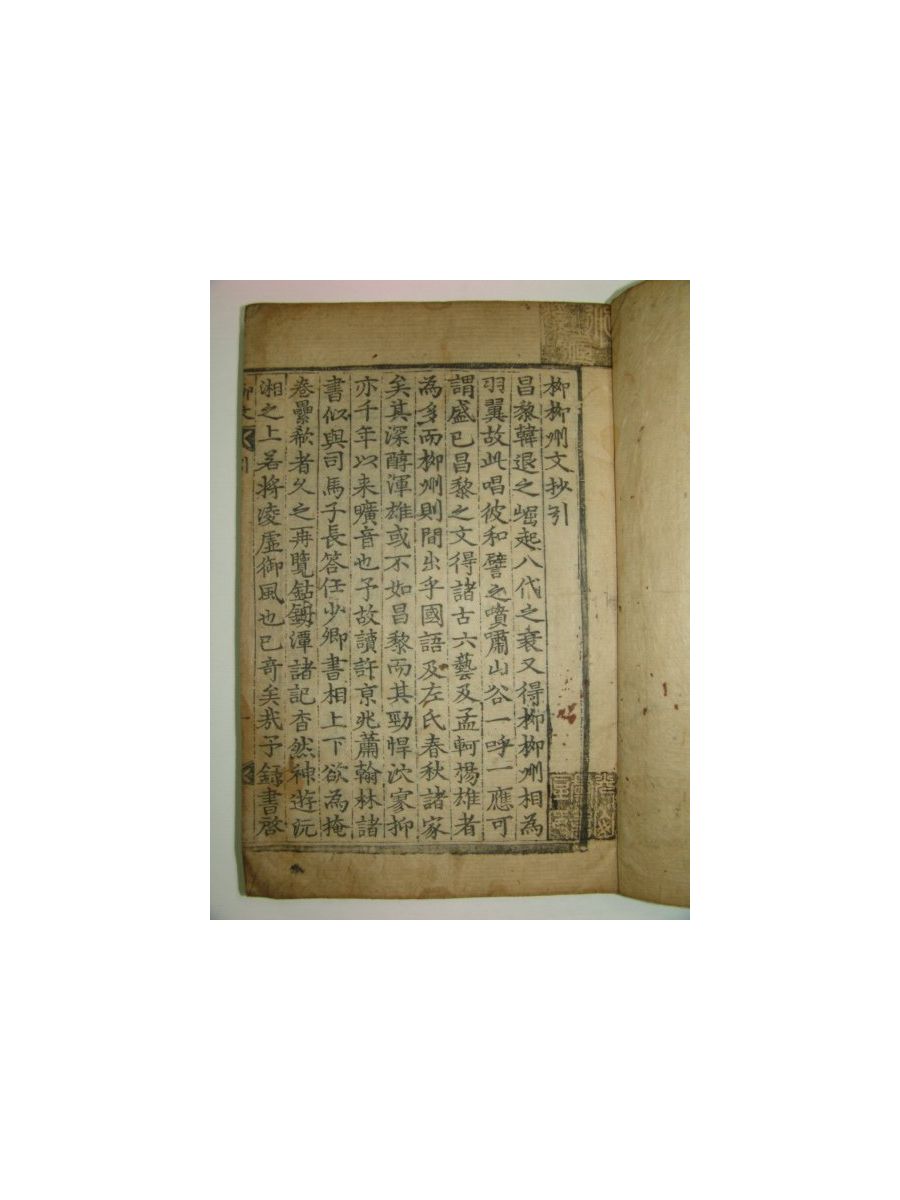 柳柳州文抄引
昌黎韓退之崛起八代之衰又得柳柳州相為
羽翼故此唱彼和譬之噴嘯山谷一呼一應可
謂盛已昌黎之文得諸古六藝及孟軻揚雄者
為多而柳州則間出乎國語及左氏春秋諸家
矣其深醇渾雄或不如昌黎而其勁悍泬寥抑
亦千年以来曠音也予故讀許京兆蕭翰林諸
書似與司馬子長答任少卿書相上下欲為掩
卷纍欷者久之再覽鈷鉧潭諸記杳然神遊沅
湘之上若將凌虛御風也已奇矣哉予錄書啓
柳文
引
一